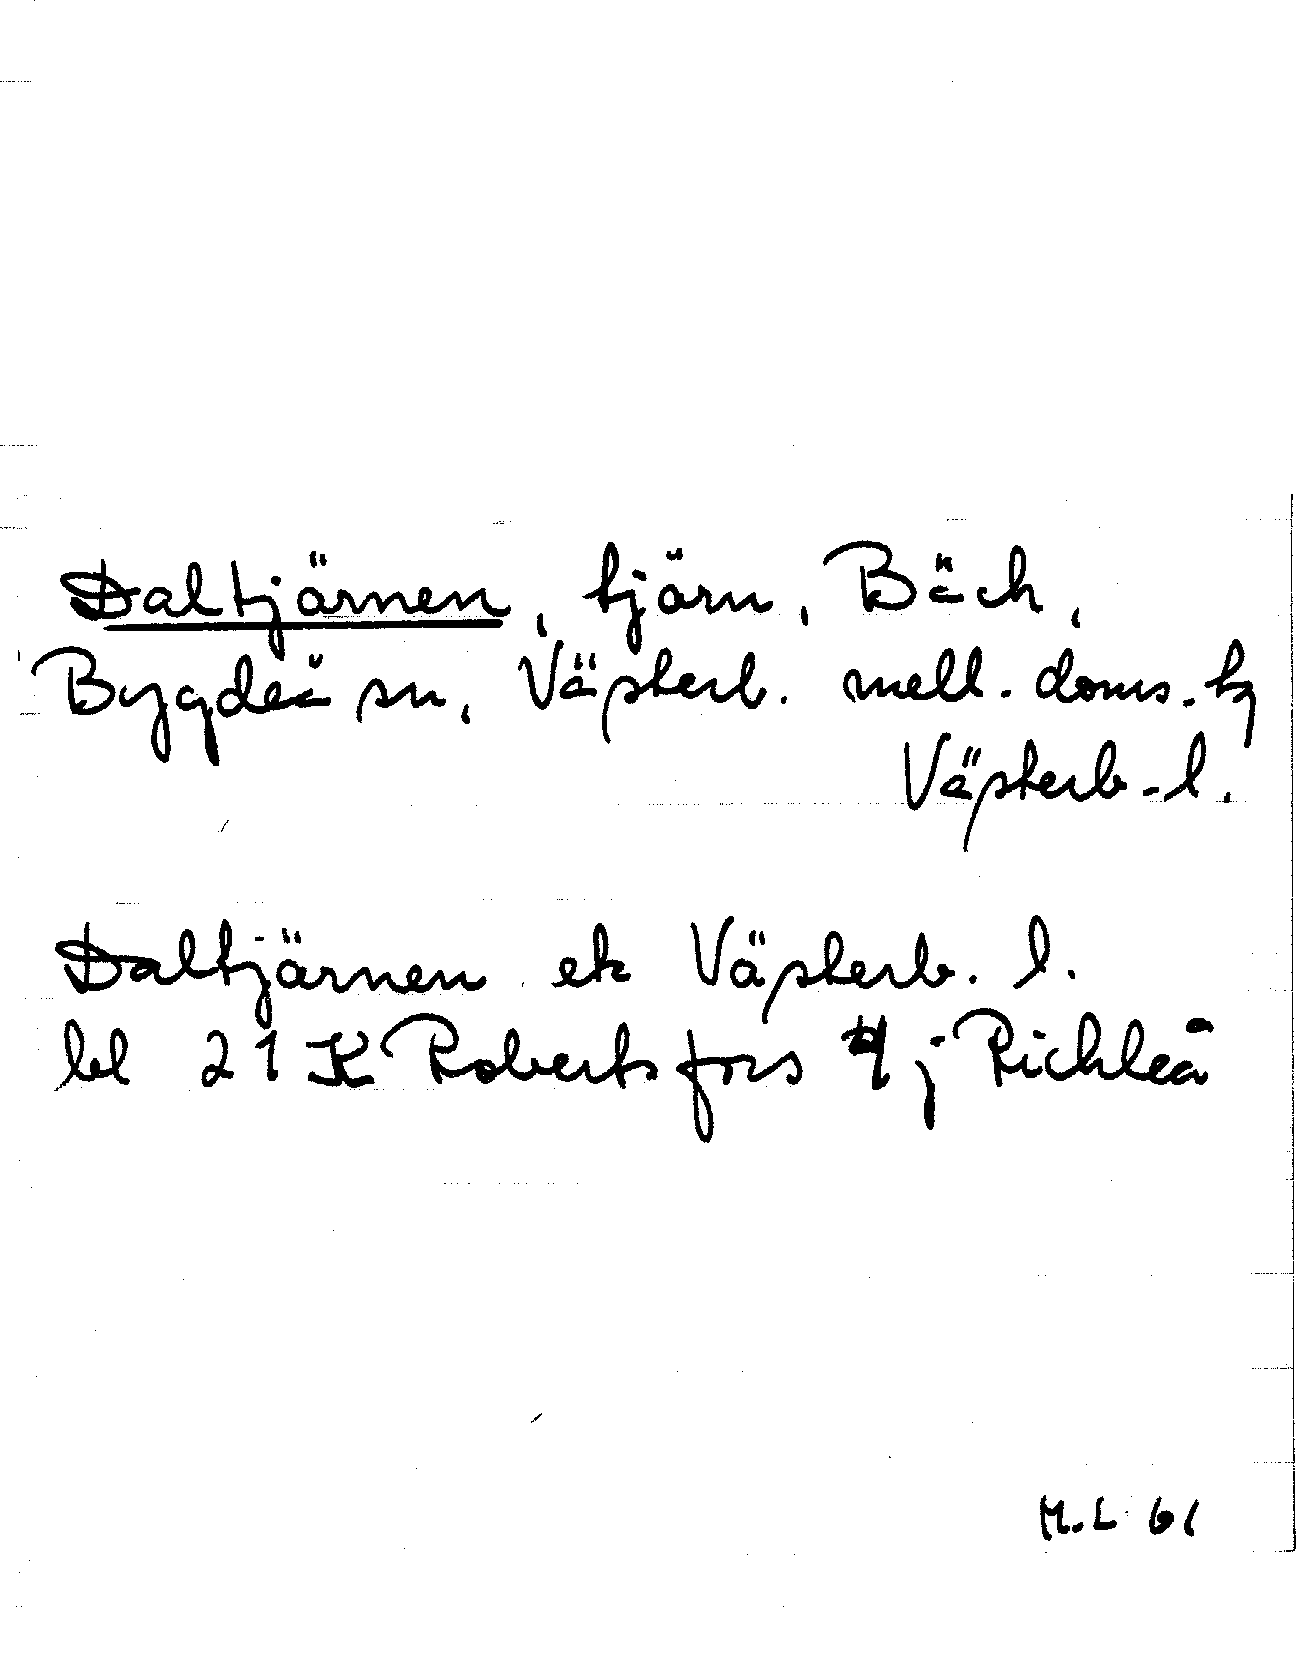 Daltjärnen, tjärn, Bäck,
Bygdeå sn, Västerb. mell. doms. tg
Västerb-l.
Daltjärnen ek Västerb. l.
bl 21 K Robertsfors 4 j Rickleå
M.L 61